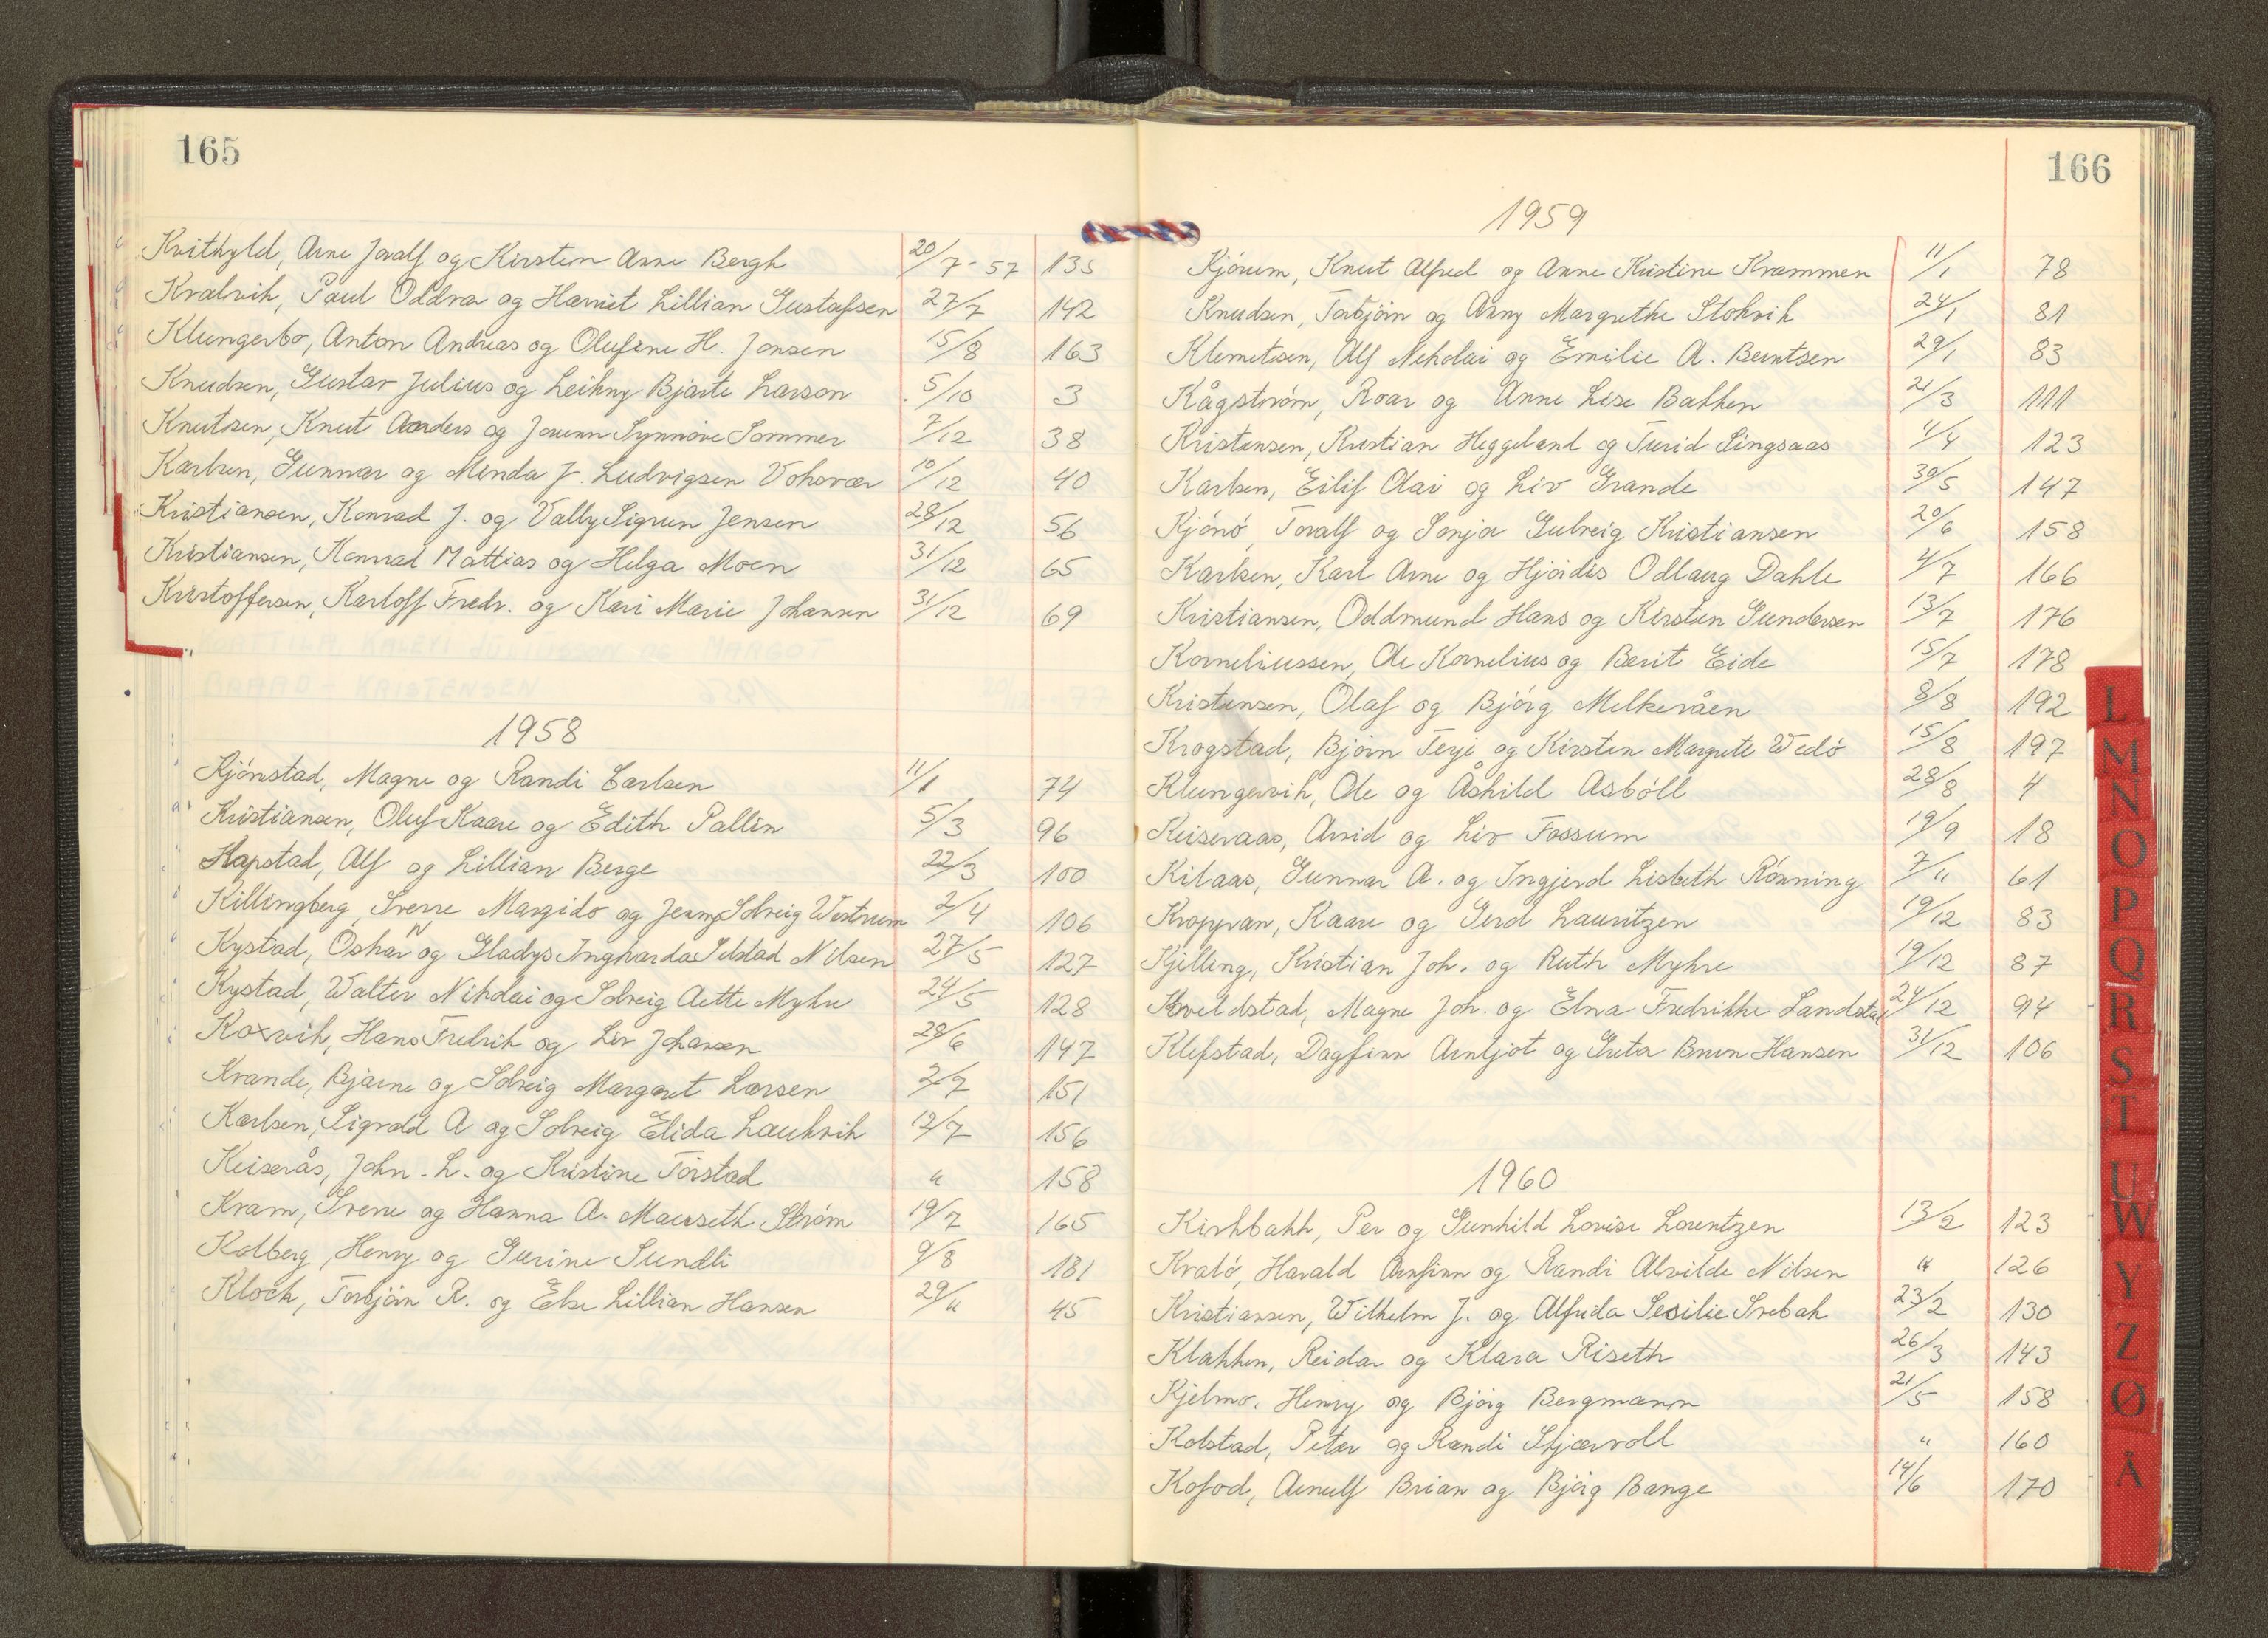 165
Kvithyld, Arne Joralf og Kirsten Anne Bergh 20/7-57 135
Kralvik, Paul Oddvar og Harriet Lillian Gustafsen 27/7 142
Klungerbo, Anton Andreas og Olufine H. Jensen 15/8 163
Knudsen, Gustav Julius og Leikny Bjarte Larson 5/10 3
Knutsen, Knut Anders og Jorunn Synnøve Sommer 7/12 38
Karlsen, Gunnar og Menda J. Ludvigsen Vohsvær 10/12 40
Kristiansen, Konrad J. og Vally Sigrun Jensen 28/12 56
Kristiansen, Konrad Mattias og Helga Moen 31/12 65
Kristoffersen, Karloff Fredr. og Kari Marie Johansen 31/12 69
1958
Kjónstad, Magne og Randi Carlsen 11/1 74
Kristiansen, Oluf Kaare og Edith Pallin 5/3 96
Hapstad, Alf og Lillian Berge 22/3 100
Killingberg, Sverre Margido og Jenny Solveig Westrum 2/4 106
Kystad, Oskar N og Gladys Inghardas Selstad Nilsen 27/5 127
Kystad, Walter Nikolai og Solveig Aette Myhre 24/5 128
Koxvik, Hans Fredrik og Liv Johansen 28/6 147
Krande, Bjarne og Solveig Margaret Larsen 2/7 151
Karlsen, Sigvald A og Solveig Elida Laukvik 12/7 156
Keiserås, John. L. og Kristine Torstad " 158
Kram, Sverre og Hanna A. Mauseth Strøm 19/7 165
Kolberg, Henry og Gurine Sundli 9/8 181
Klock, Torbjörn R. og Else Lillian Hansen 29/11 45
166
1959
Kjórum, Knut Alfred og Anne Kristine Krammen 11/1 78
Knudsen, Torbjörn og Anny Margrethe Stokvik 24/1 81
Klemetsen, Alf Nikolai og Emilie A. Berntsen 29/1 83
Kågström, Roar og Anne Lise Bakken 21/3 111
Kristensen, Kristian Heggeland og Turid Singsaas 4/4 123
Karlsen, Eilif Olai og Liv Grande 30/5 147
Kjónó, Toralf og Sonja Gulveig Kristiansen 20/6 158
Karlsen, Karl Arne og Hjördis Odlaug Dahle 4/7 166
Kristiansen, Oddmund Hans og Kirsten Gundersen 13/7 176
Korneliussen, Ole Kornelius og Berit Eide 15/7 178
Kristensen, Olaf og Bjórg Melkeråen 8/8 192
Krogstad, Bjórn Terje og Kirsten Margrete Wedó 15/8 197
Klungervik, Ole og Åshild Asbóll 28/8 4
Keiseraas, Arvid og Liv Fossum 19/9 18
Kilaas, Gunnar A. og Ingjerd Lisbeth Rónning 7/11 61
Kroppan, Kaare og Gerd Lauritzen 19/12 83
Kjelling, Kristian Joh. og Ruth Myhre 19/12 87
Kveldstad, Magne Joh. og Elna Fredrikke Landstad 24/12 94
Klefstad, Dagfinn Arnljot og Greta Brun Hansen 31/12 106
1960
Kirkbakk, Per og Gunhild Lovise Lorentzen 13/2 123
Kraló, Harald Arnfinn og Randi Alvilde Nilsen " 126
Kristiansen, Wilhelm J. og Alfrida Secilie Srebak 23/2 130
Klakken, Reidar og Klara Riseth 26/3 143
Kjelmo, Henry og Bjórg Bergmann 21/5 158
Kolstad, Peter og Randi Skjærvoll " 160
Kofod, Arnulf Brian og Bjórg Bange 14/6 170
L
M
N
O
P
Q
R
S
T
U
W
Y
Z
Ø
A